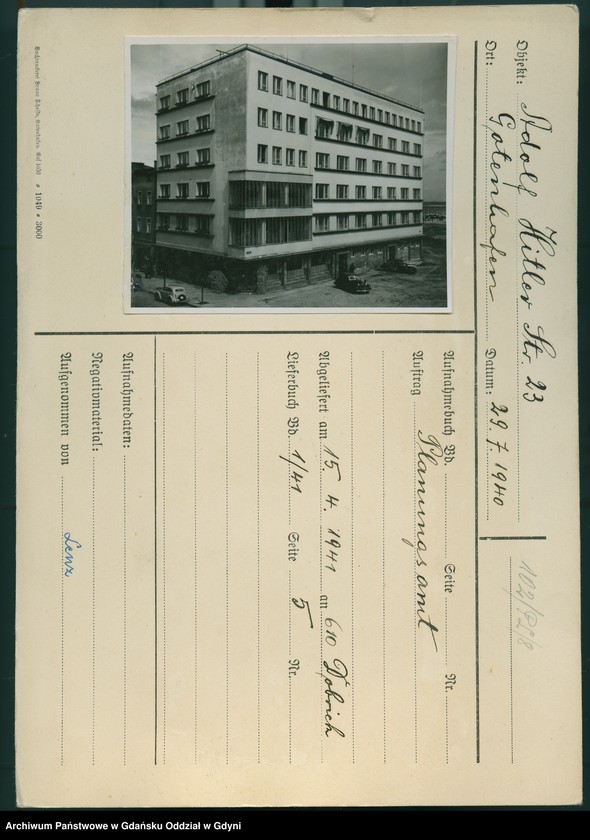 Objekt: Adolf Hitler Str. 23
Ort: Gotenhafen Datum: 29.7.1940
102/92/8
Aufnahmebuch Bd. Seite Nr.
Auftrag Planungsamt
Abgeliefert am 15. 4. 1941 an 610
Lieferbuch Bd. 1/41 Seite 5 Nr.
Aufnahmedaten:
Negativmaterial:
Aufgenommen von Lenz
* 1049 * 3000
Archiwum Państwowe w Gdańsku Oddział w Gdyni